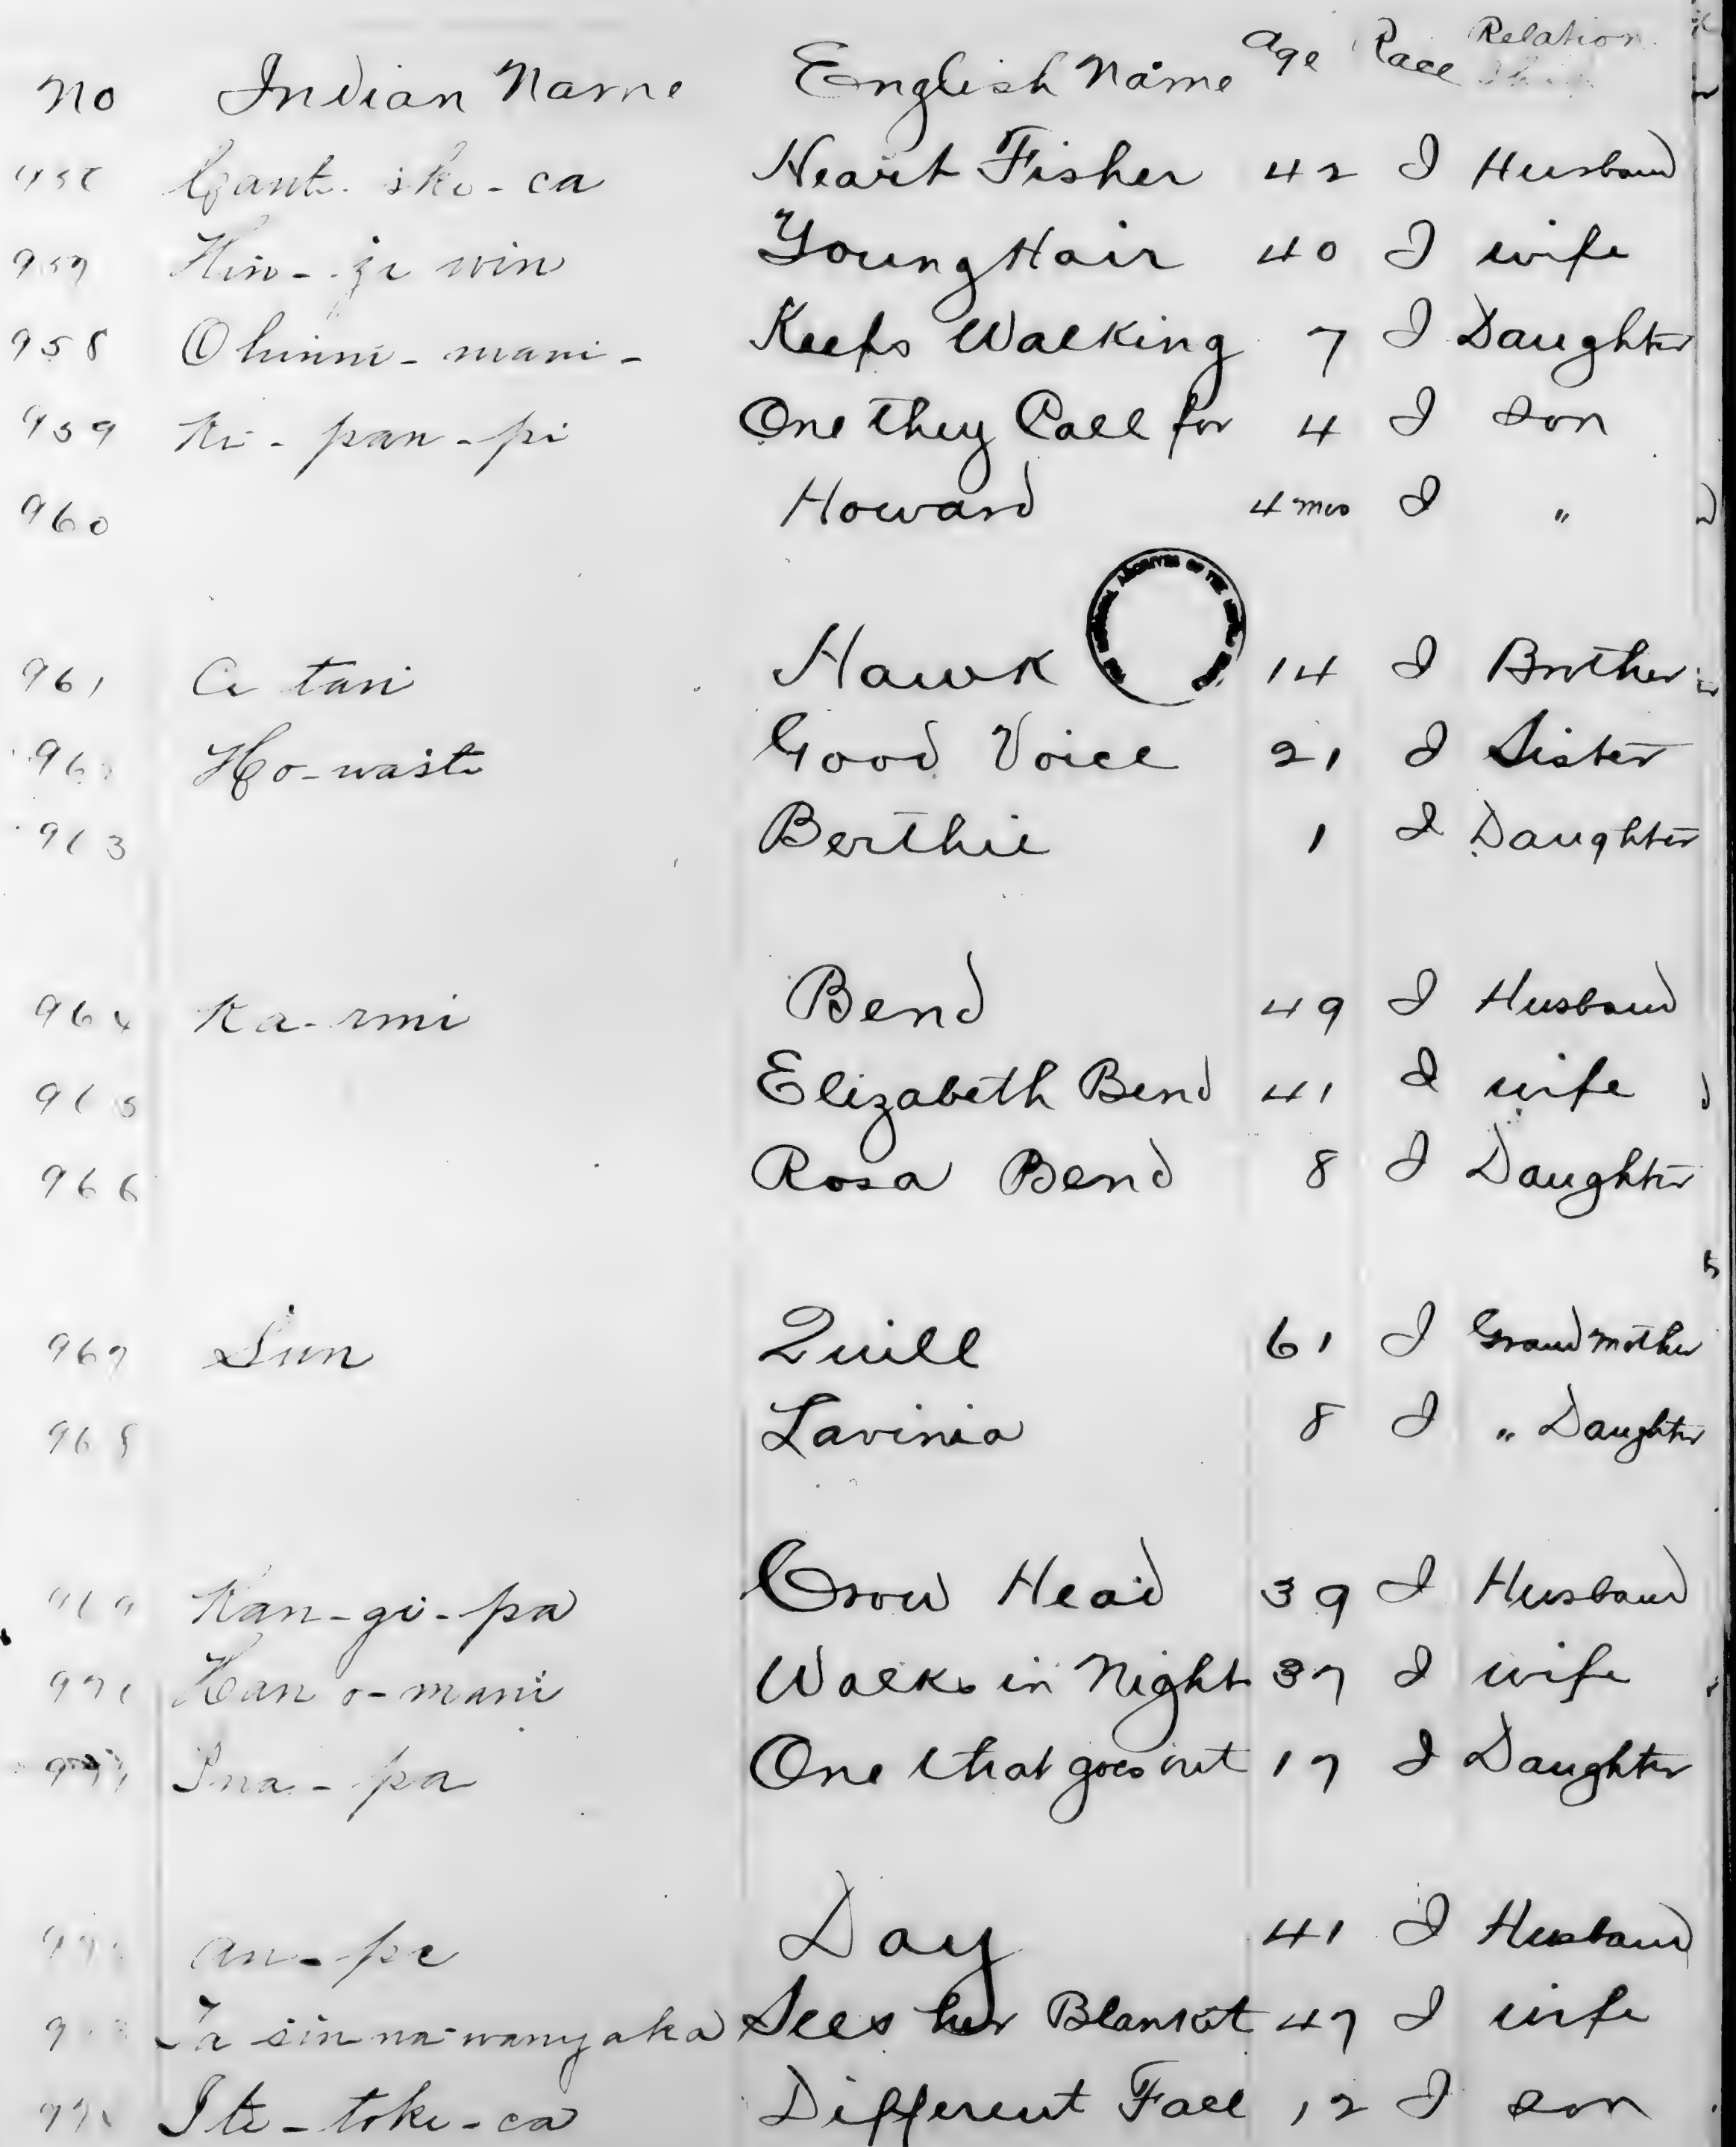 No Indian Name English Name Age Race Relation
Heart Fisher 42 I Husband
Hin - zi win Young Hair 40 I wife
958 Ohinni - mani - Keeps Walking 7 I Daughter
959 Ki - pan - pi One they Call for 4 I Son
960 Howard 4 mos I "
961 Ce tan Hawk 14 I Brother
Ho - waste Good Voice 21 I Sister
963 Berthie 1 I Daughter
964 Ka - rmi Bend 49 I Husband
965 Elizabeth Bend 41 I wife
966 Rosa Bend 8 I Daughter
967 Sun Quill 61 I Grand Mother
968 Lavinia 8 I " Daughter
969 Kan - gi - pa Crow Head 39 I Husband
Han o - mani Walks in Night 37 I wife
971 Ina - pa One that goes out 17 I Daughter
An - pe Day 41 I Husband
Ta sin na wanyaka Sees her Blanket 47 I wife
Ite - toke - ca Different Face 12 I Son